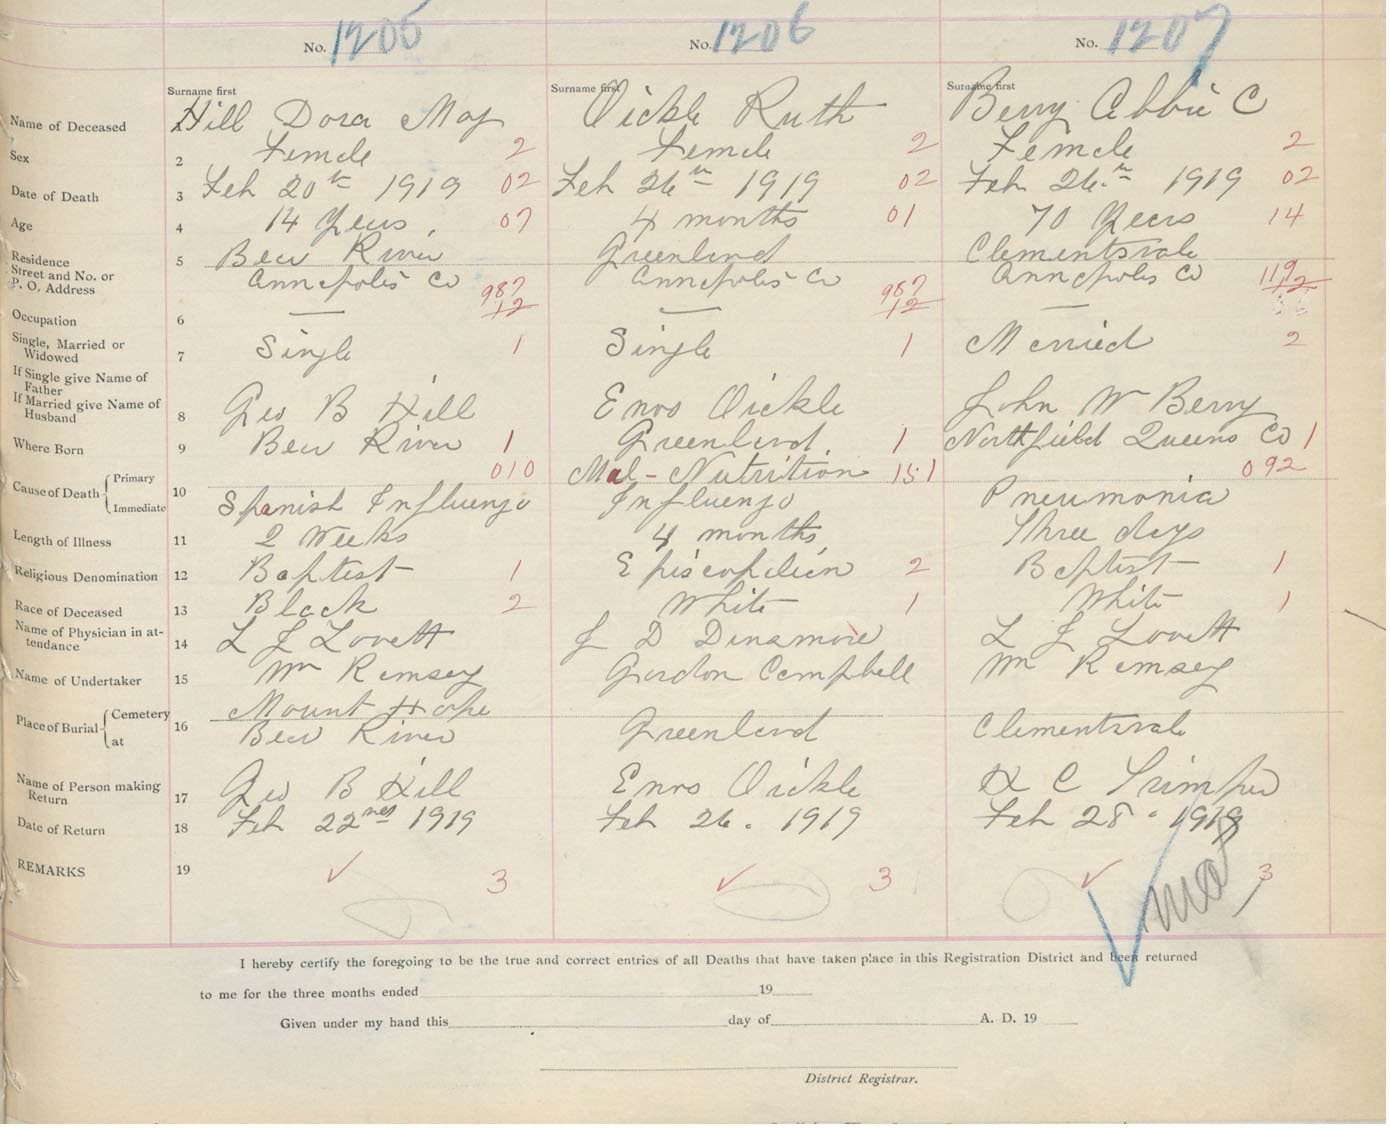 No. 1205 No. 1206 No. 1207
Surname first Surname first Surname first
Name of Deceased Hill Dora May Oickle Ruth Berry Abbie C
Sex 2 Female 2 Female 2 Female 2
Date of Death 3 Feb 20th 1919 02 Feb 26th 1919 02 Feb 26th 1919 02
Age 4 14 Years 07 4 months 01 70 Years 14
Residence 5 Bear River Greenland Clementsvale
Street and No. or
P. O. Address Annapolis Co 987 Annapolis Co 987 Annapolis Co 119
12 12 12
Occupation 6 — — —
Single, Married or
Widowed 7 Single 1 Single 1 Married 2
If Single give Name of
Father
If Married give Name of
Husband 8 Geo B Hill Enos Oickle John W Berry
Where Born 9 Bear River 1 Greenland 1 Northfield Queens Co 1
Cause of Death { Primary 010 Mal-Nutrition 151 092
Immediate 10 Spanish Influenza Influenza Pneumonia
Length of Illness 11 2 Weeks 4 months Three days
Religious Denomination 12 Baptist 1 Episcopalian 2 Baptist 1
Race of Deceased 13 Black 2 White 1 White 1
Name of Physician in at-
tendance 14 L J Lovett J D Dinsmore L J Lovett
Name of Undertaker 15 Wm Ramsey Gordon Campbell Wm Ramsey
Place of Burial { Cemetery Mount Hope
at 16 Bear River Greenland Clementsvale
Name of Person making
Return 17 Geo B Hill Enos Oickle H C Trimper
Date of Return 18 Feb 22nd 1919 Feb 26. 1919 Feb 28. 1919
REMARKS 19 ✓ 3 ✓ 3 ✓ 3
I hereby certify the foregoing to be the true and correct entries of all Deaths that have taken place in this Registration District and been returned
to me for the three months ended 19
Given under my hand this day of A. D. 19
District Registrar.